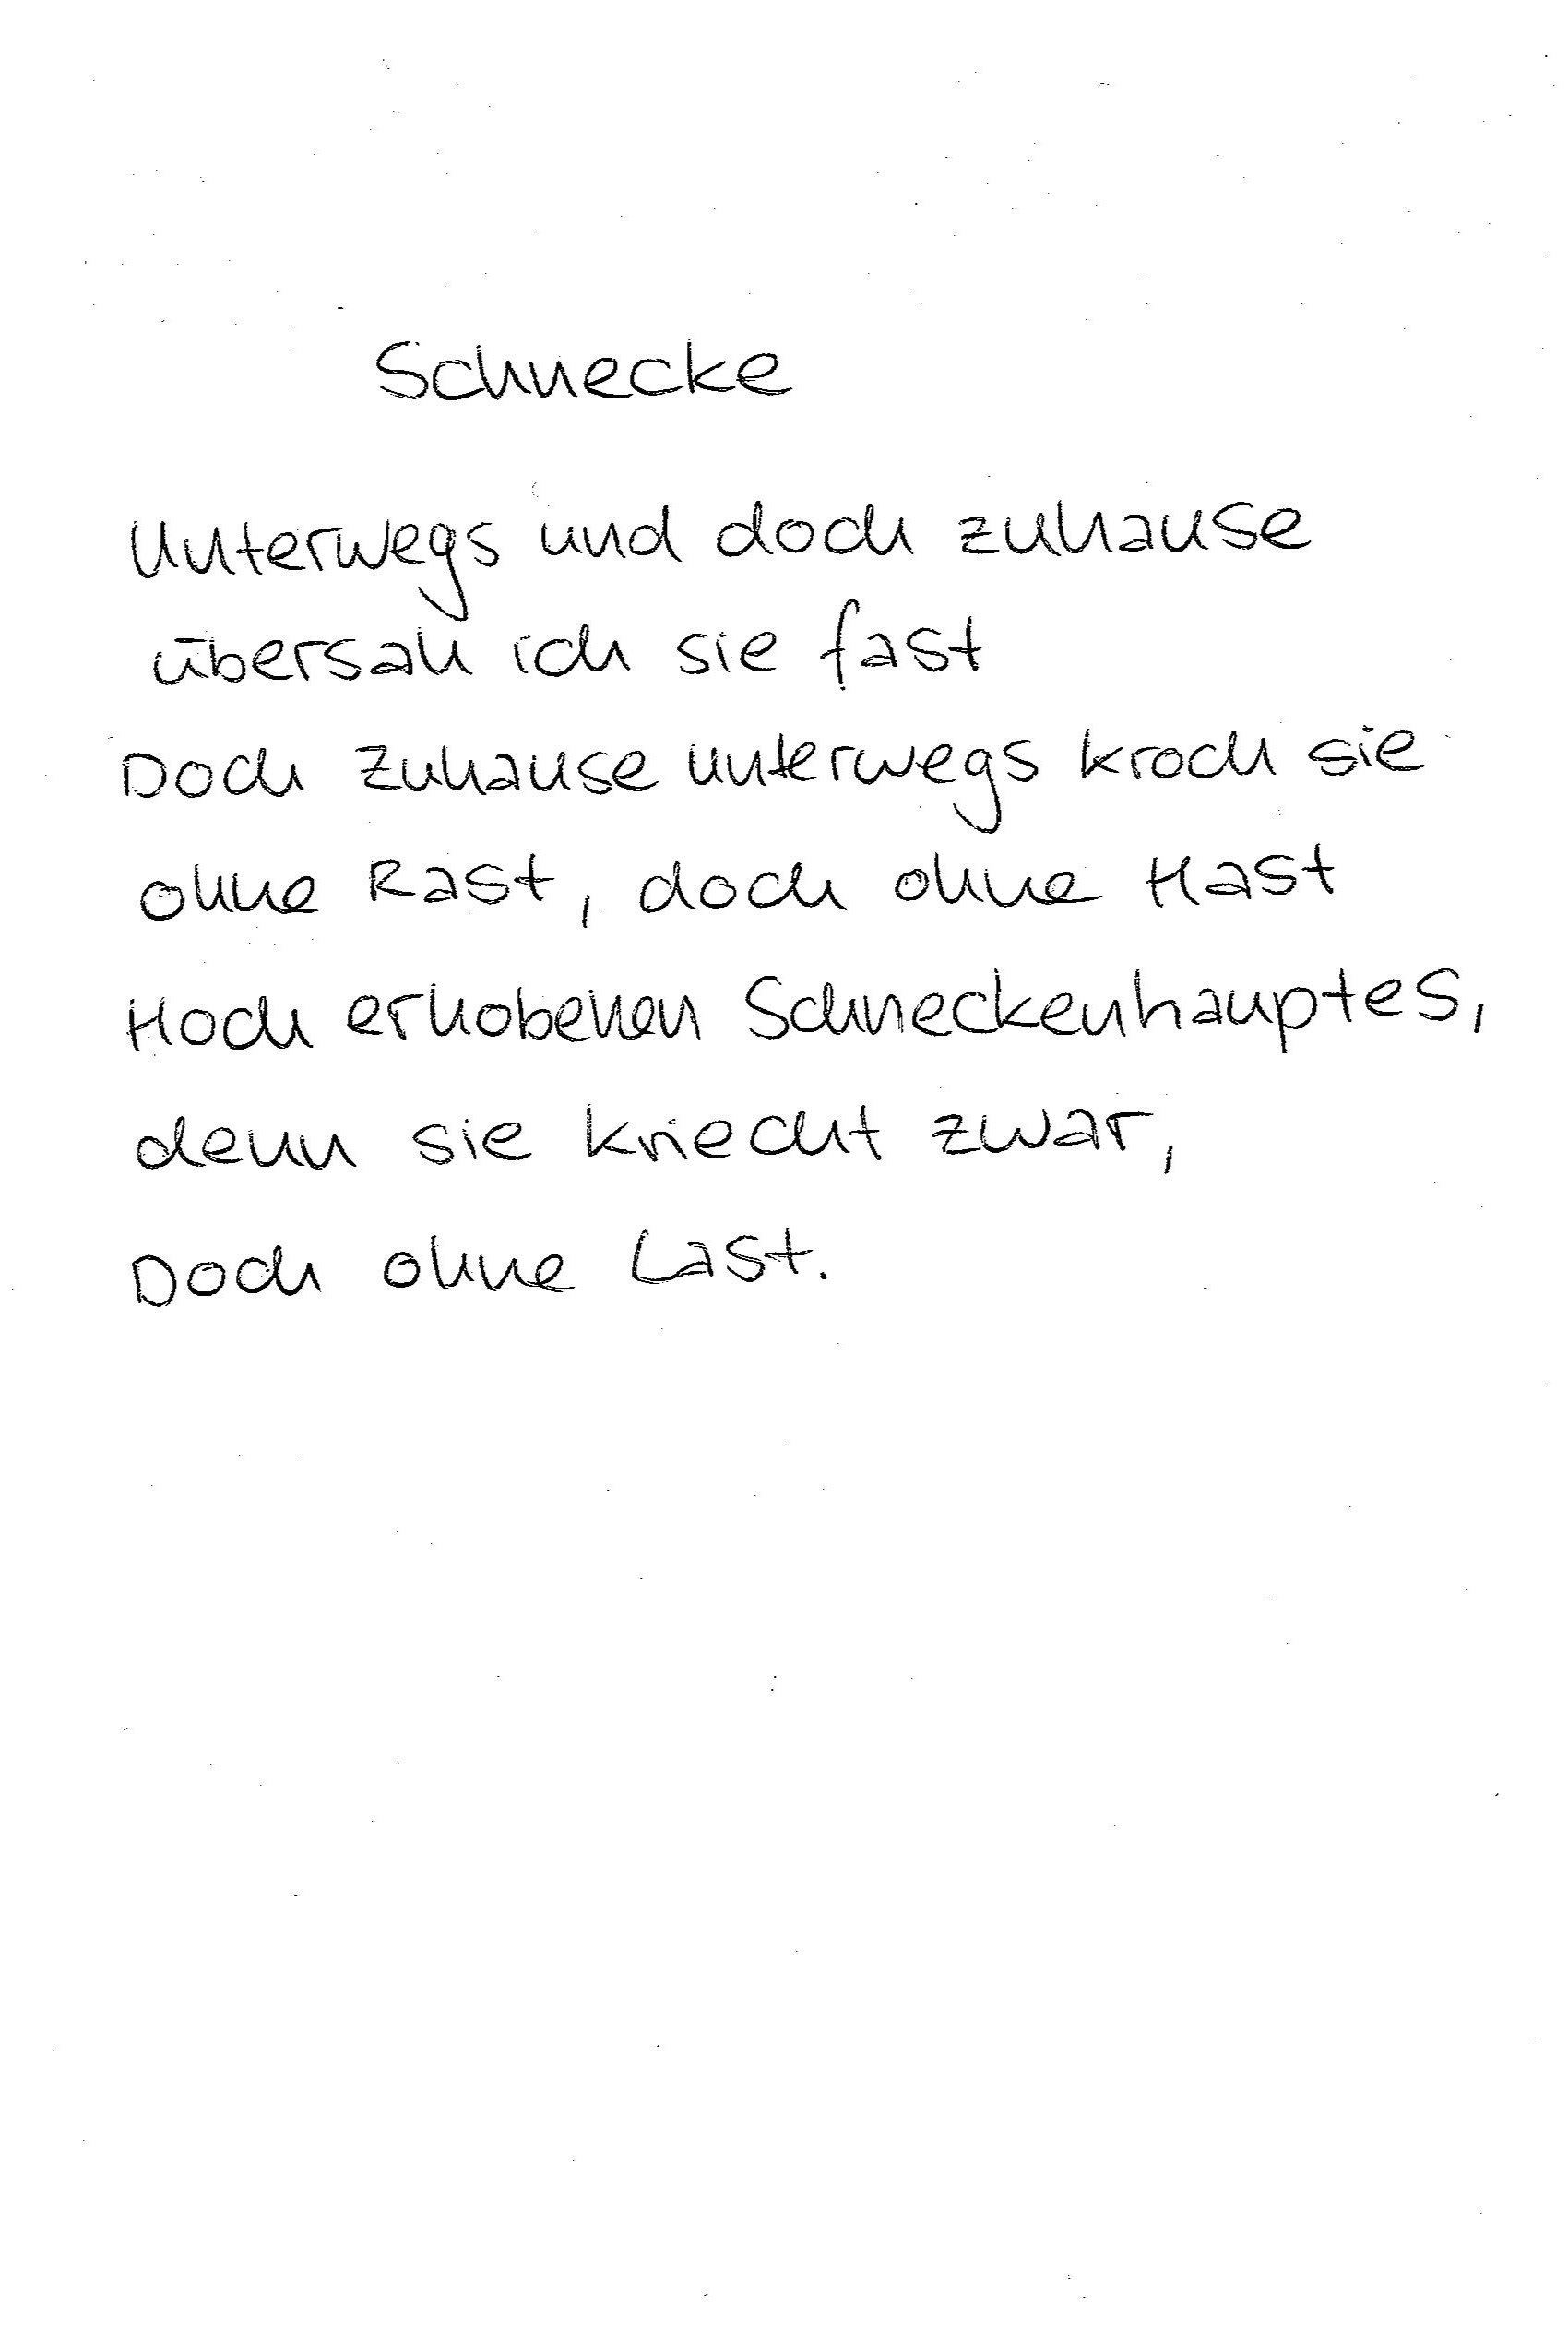 Schnecke
Unterwegs und doch zuhause
übersah ich sie fast
Doch zuhause unterwegs kroch sie
ohne Rast, doch ohne Hast
Hoch erhobenen Schneckenhauptes,
denn sie kriecht zwar,
Doch ohne Last.